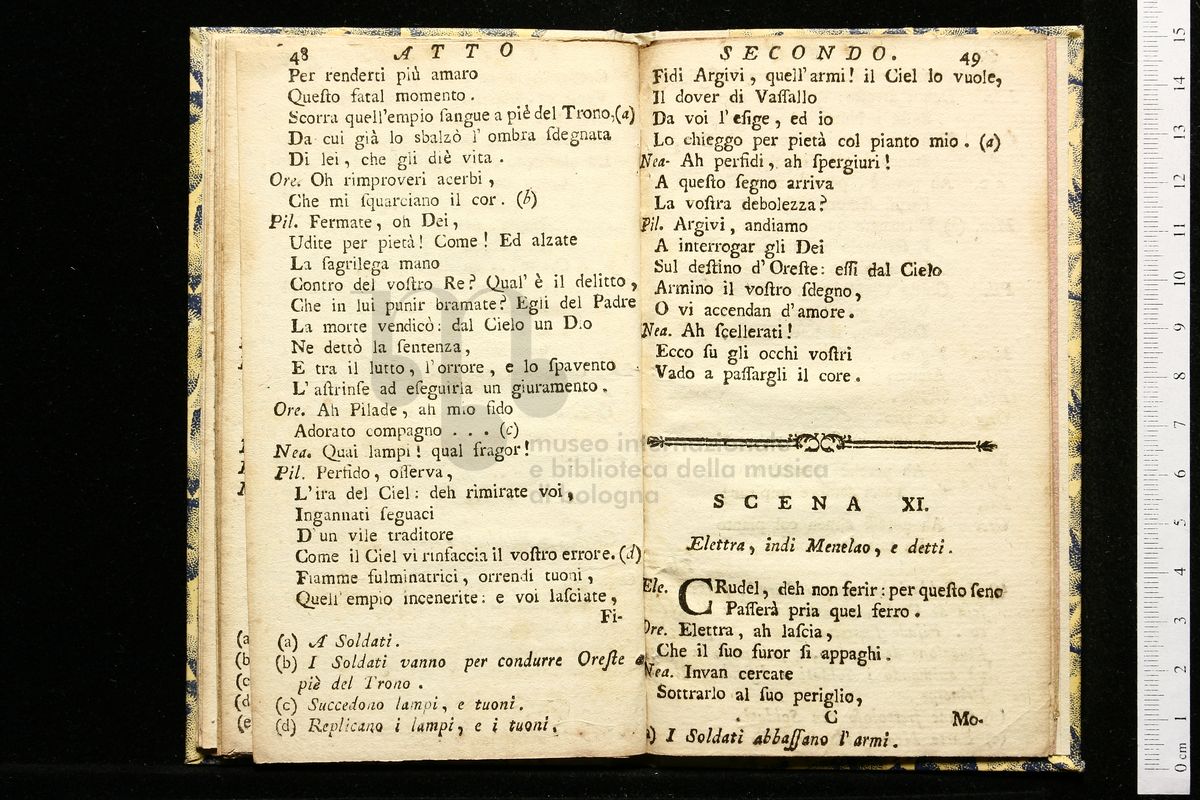 48 ATTO
Per renderti più amaro
Queſto fatal momento.
Scorra quell'empio ſangue a piè del Trono,(a)
Da cui già lo sbalzò l' ombra ſdegnata
Di lei, che gli diè vita.
Ore. Oh rimproveri acerbi,
Che mi ſquarciano il cor. (b)
Pil. Fermate, oh Dei,
Udite per pietà! Come! Ed alzate
La ſagrilega mano
Contro del voſtro Re? Qual' è il delitto,
Che in lui punir bramate? Egli del Padre
La morte vendicò: dal Cielo un Dio
Ne dettò la ſentenza,
E tra il lutto, l'orrore, e lo ſpavento
L' aſtrinſe ad eſeguirla un giuramento.
Ore. Ah Pilade, ah mio fido
Adorato compagno . . . (c)
Nea. Quai lampi! qual fragor!
Pil. Perfido, oſſerva,
L'ira del Ciel: deh rimirate voi,
Ingannati ſeguaci
D'un vile traditore
Come il Ciel vi rinfaccia il voſtro errore.(d)
Fiamme fulminatrici, orrendi tuoni,
Quell' empio incenerite: e voi laſciate,
Fi-
(a) A Soldati.
(b) I Soldati vanno per condurre Oreſte a
piè del Trono.
(c) Succedono lampi, e tuoni.
(d) Replicano i lampi, e i tuoni.
(a
(b
(c
(d
(e
SECONDO. 49
Fidi Argivi, quell'armi! il Ciel lo vuole,
Il dover di Vaſſallo
Da voi l'eſige, ed io
Lo chieggo per pietà col pianto mio. (a)
Nea- Ah perfidi, ah ſpergiuri!
A queſto ſegno arriva
La voſtra debolezza?
Pil. Argivi, andiamo
A interrogar gli Dei
Sul deſtino d'Oreſte: eſſi dal Cielo
Armino il voſtro ſdegno,
O vi accendan d'amore.
Nea. Ah ſcellerati!
Ecco ſu gli occhi voſtri
Vado a paſſargli il core.
SCENA XI.
Elettra, indi Menelao, e detti.
Ele. CRudel, deh non ferir: per queſto ſeno
Paſſerà pria quel ferro.
Ore. Elettra, ah laſcia,
Che il ſuo furor ſi appaghi.
Nea. Invan cercate
Sottrarlo al ſuo periglio,
C Mo-
) I Soldati abbaſſano l'armi.
museo internazionale
e biblioteca della musica
di bologna
0 cm 1 2 3 4 5 6 7 8 9 10 11 12 13 14 15